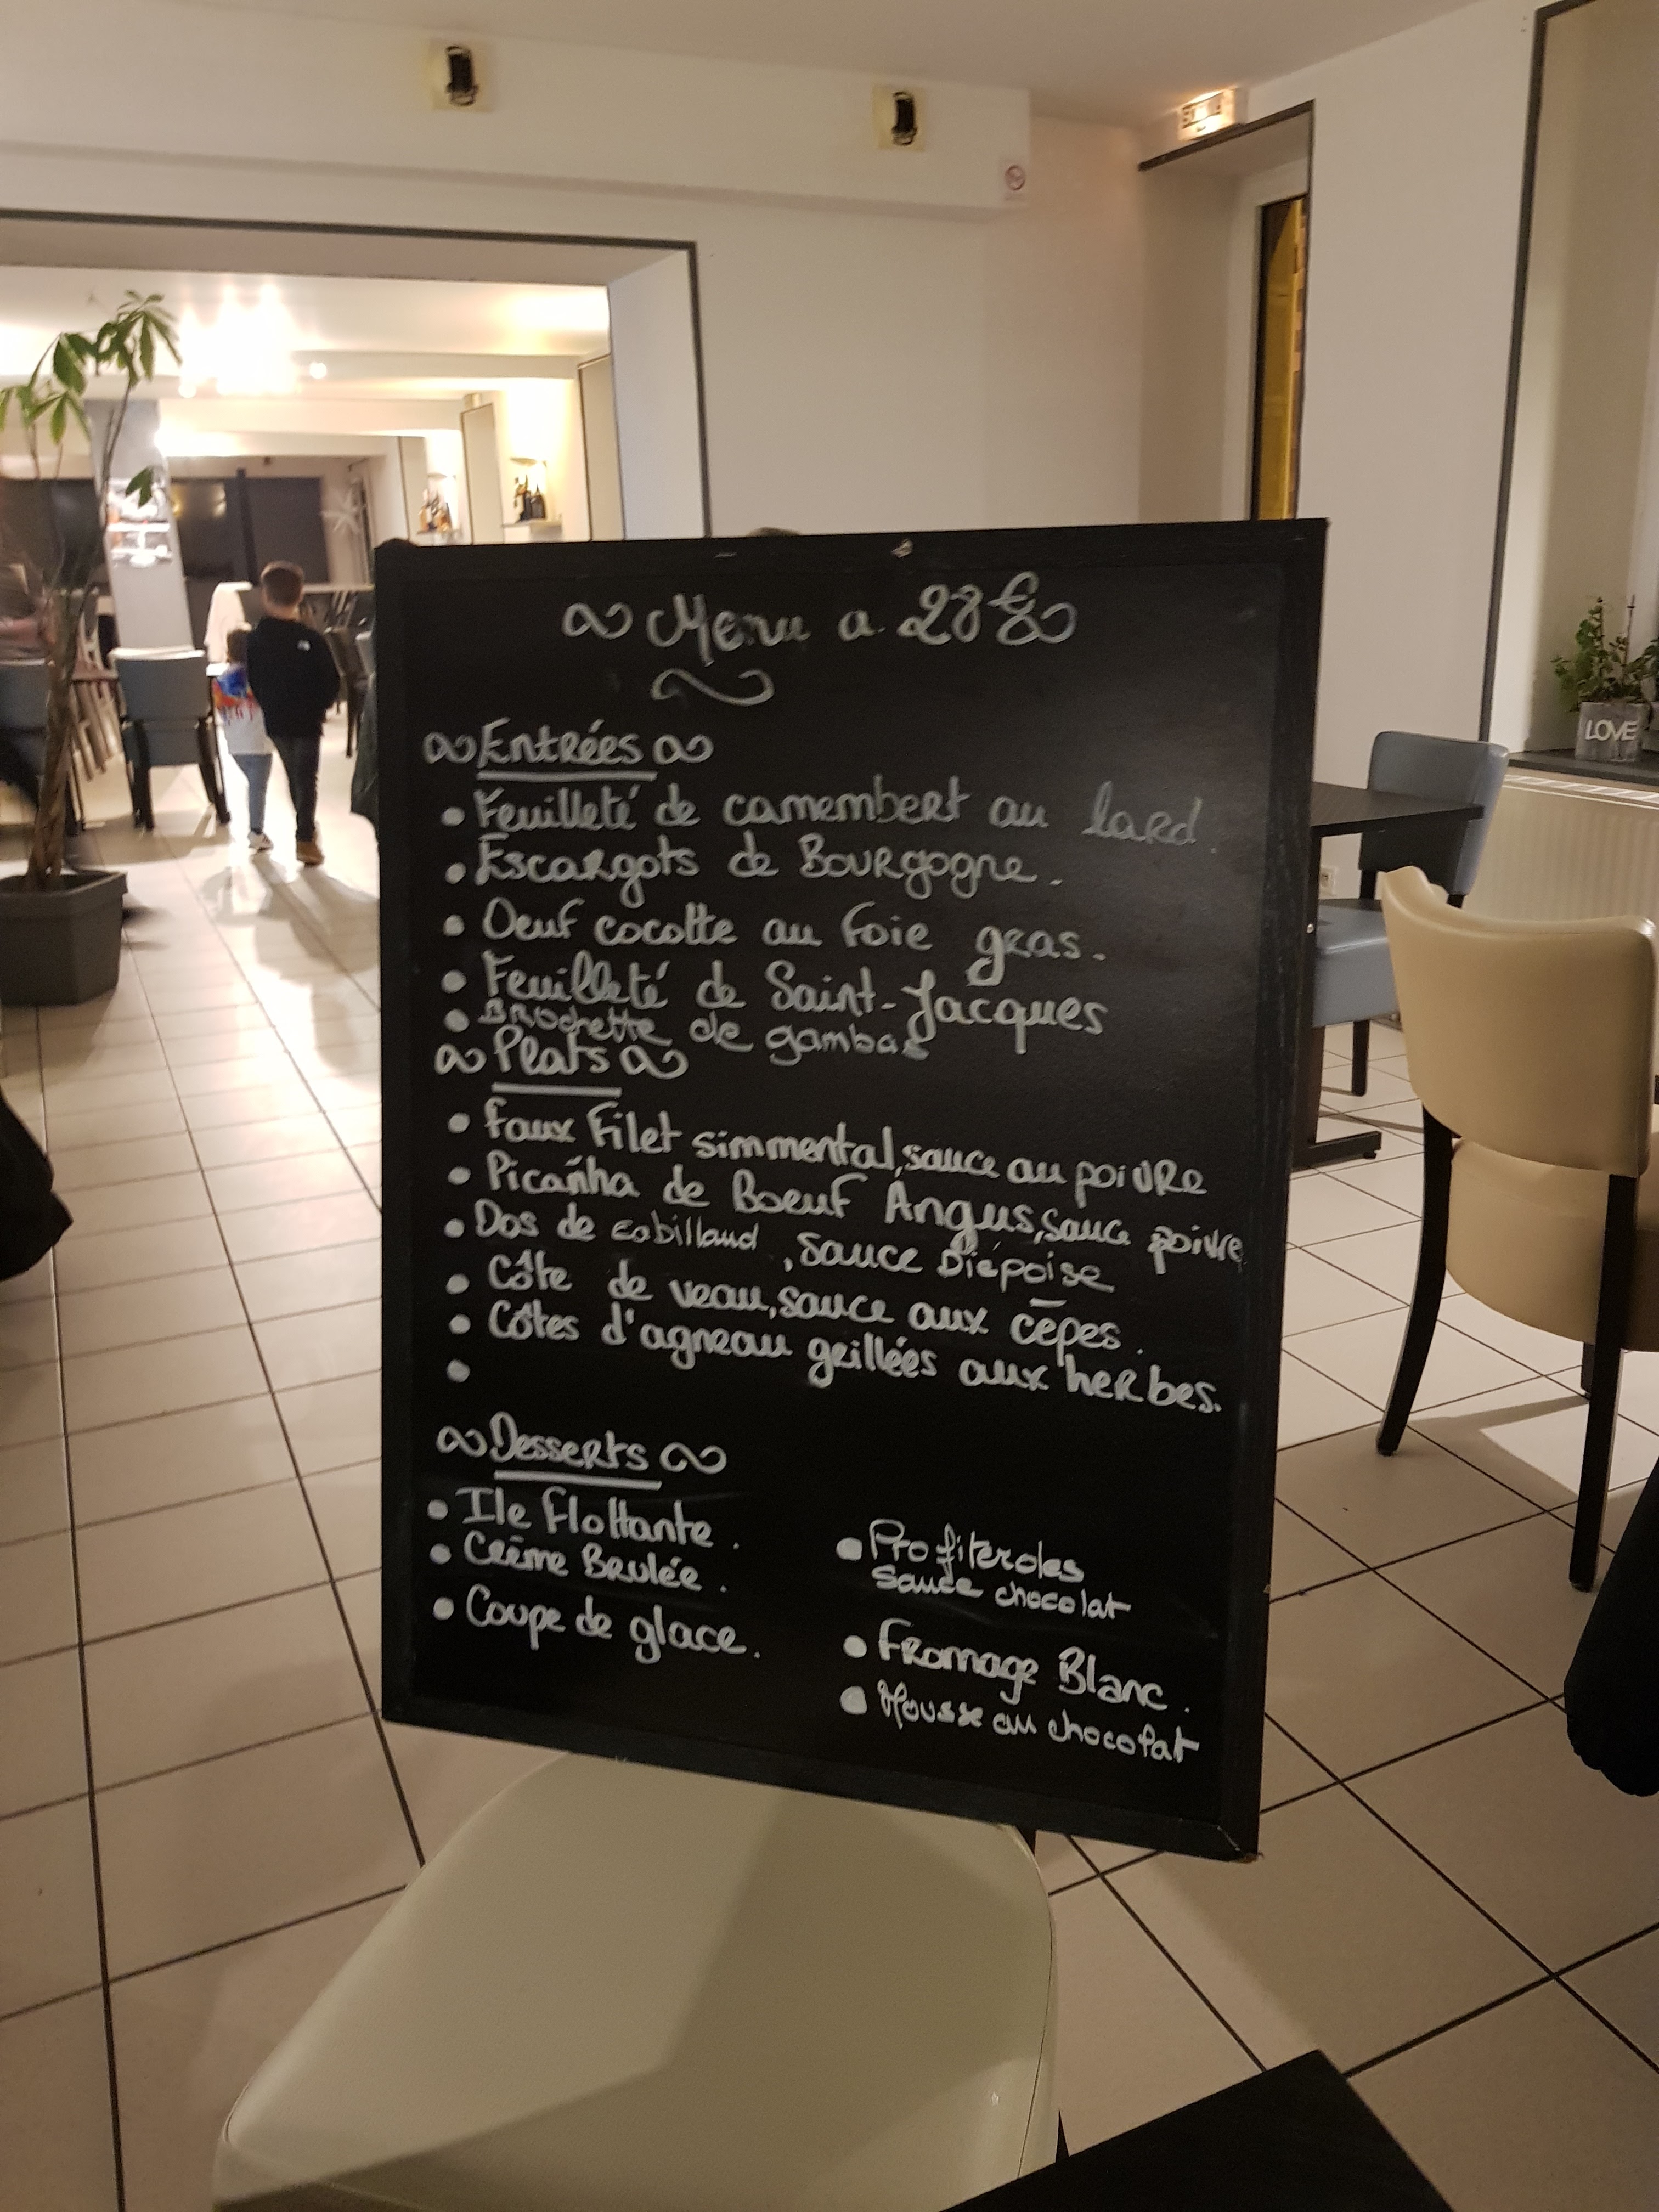 Menu a 28€
Entrées
• Feuilleté de camembert au lard.
• Escargots de Bourgogne.
• Oeuf cocotte au foie gras.
• Feuilleté de Saint-Jacques
• Brochette de gambas
Plats
• Faux Filet simmental, sauce au poivre
• Picañha de Boeuf Angus, sauce poivre
• Dos de cabillaud, sauce Diépoise
• Côte de veau, sauce aux cēpes.
• Côtes d'agneau grillées aux herbes.
•
Desserts
• Ile Flottante.
• Crème Brulée.
• Coupe de glace.
• Profiteroles
sauce chocolat
• Fromage Blanc.
• Mousse au chocolat
LOVE